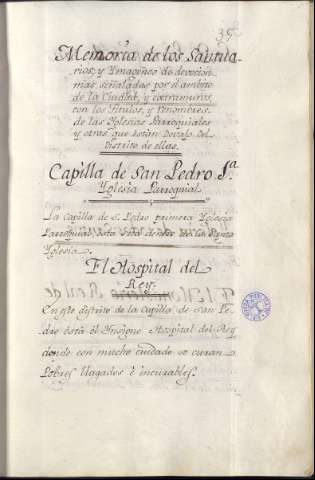 39
Memoria de los Santua-
rios, y Ymagenes de devocion
mas señaladas por el ambito
de la Ciudad, y extramuros,
con los Titulos, y Renombres
de las Yglesias Parroquiales
y otras que están Devajo del
Distrito de ellas.
Capilla de San Pedro 1.ª
Yglesia Parroquial
La Capilla de S. Pedro primera Yglesia
Parroquial, está
Yglesia.
El Hospital del
Rey.
En este distrito de la Capilla de San Pe-
dro está el Ynsigne Hospital del Rey
donde con mucho cuidado se curan
Pobres llagados é incurables.